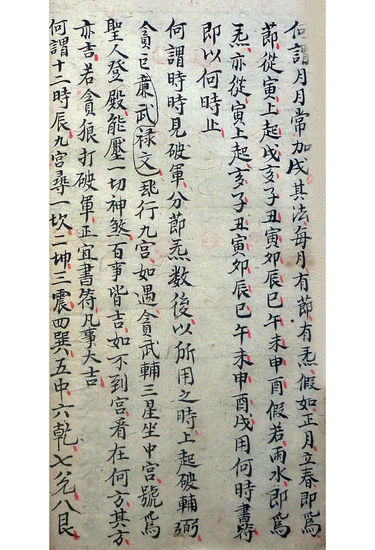 何謂月月常加戌其法每月有節有炁假如正月立春即爲
節從寅上起戌亥子丑寅卯辰巳午未申酉假若雨水即爲
炁亦從寅上起亥子丑寅卯辰巳午未申酉戌用何時書符
即以何時止
何謂時時見破軍分節炁数後以所用之時上起破輔弼
貪巨亷武禄文飛行九宮如遇貪武輔三星坐中宮號爲
聖人登殿能壓一切神煞百事皆吉如不到宮看在何方其方
亦吉若貪狼打破軍正宜書符凡事大吉
何謂十二時辰九宮尋一坎二坤三震四巽五中六乾七兊八艮